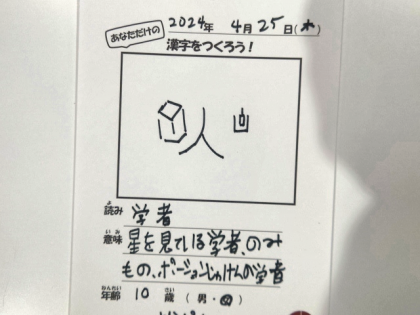 2024年 4月25日(木)
あなただけの
漢字をつくろう!
人
読み 学者
意味 星を見ている学者、のみ
もの、ポーションじっけんの学者
年齢 10 歳 (男・女)